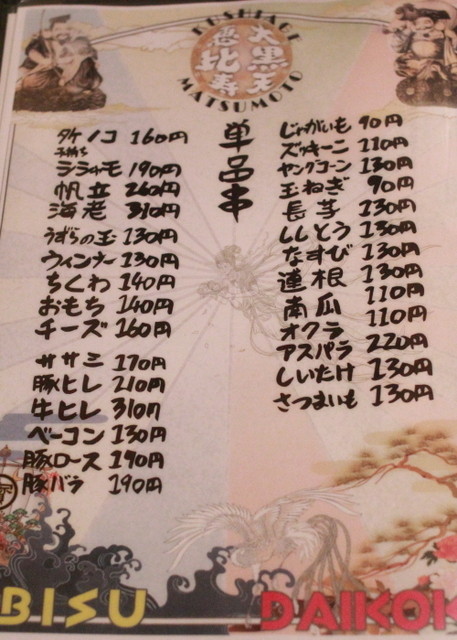 KUSHIAGE
恵比寿
大黒天
MATSUMOTO
単品串
タケノコ 160円
子持ち
シシャモ 190円
帆立 260円
海老 310円
うずらの玉 130円
ウィンナー 130円
ちくわ 140円
おもち 140円
チーズ 160円
ササミ 170円
豚ヒレ 210円
牛ヒレ 310円
ベーコン 130円
豚ロース 190円
豚バラ 190円
じゃがいも 90円
ズッキーニ 110円
ヤングコーン 130円
玉ねぎ 90円
長芋 130円
ししとう 130円
なすび 130円
蓮根 130円
南瓜 110円
オクラ 110円
アスパラ 220円
しいたけ 130円
さつまいも 130円
BISU
DAIKOK